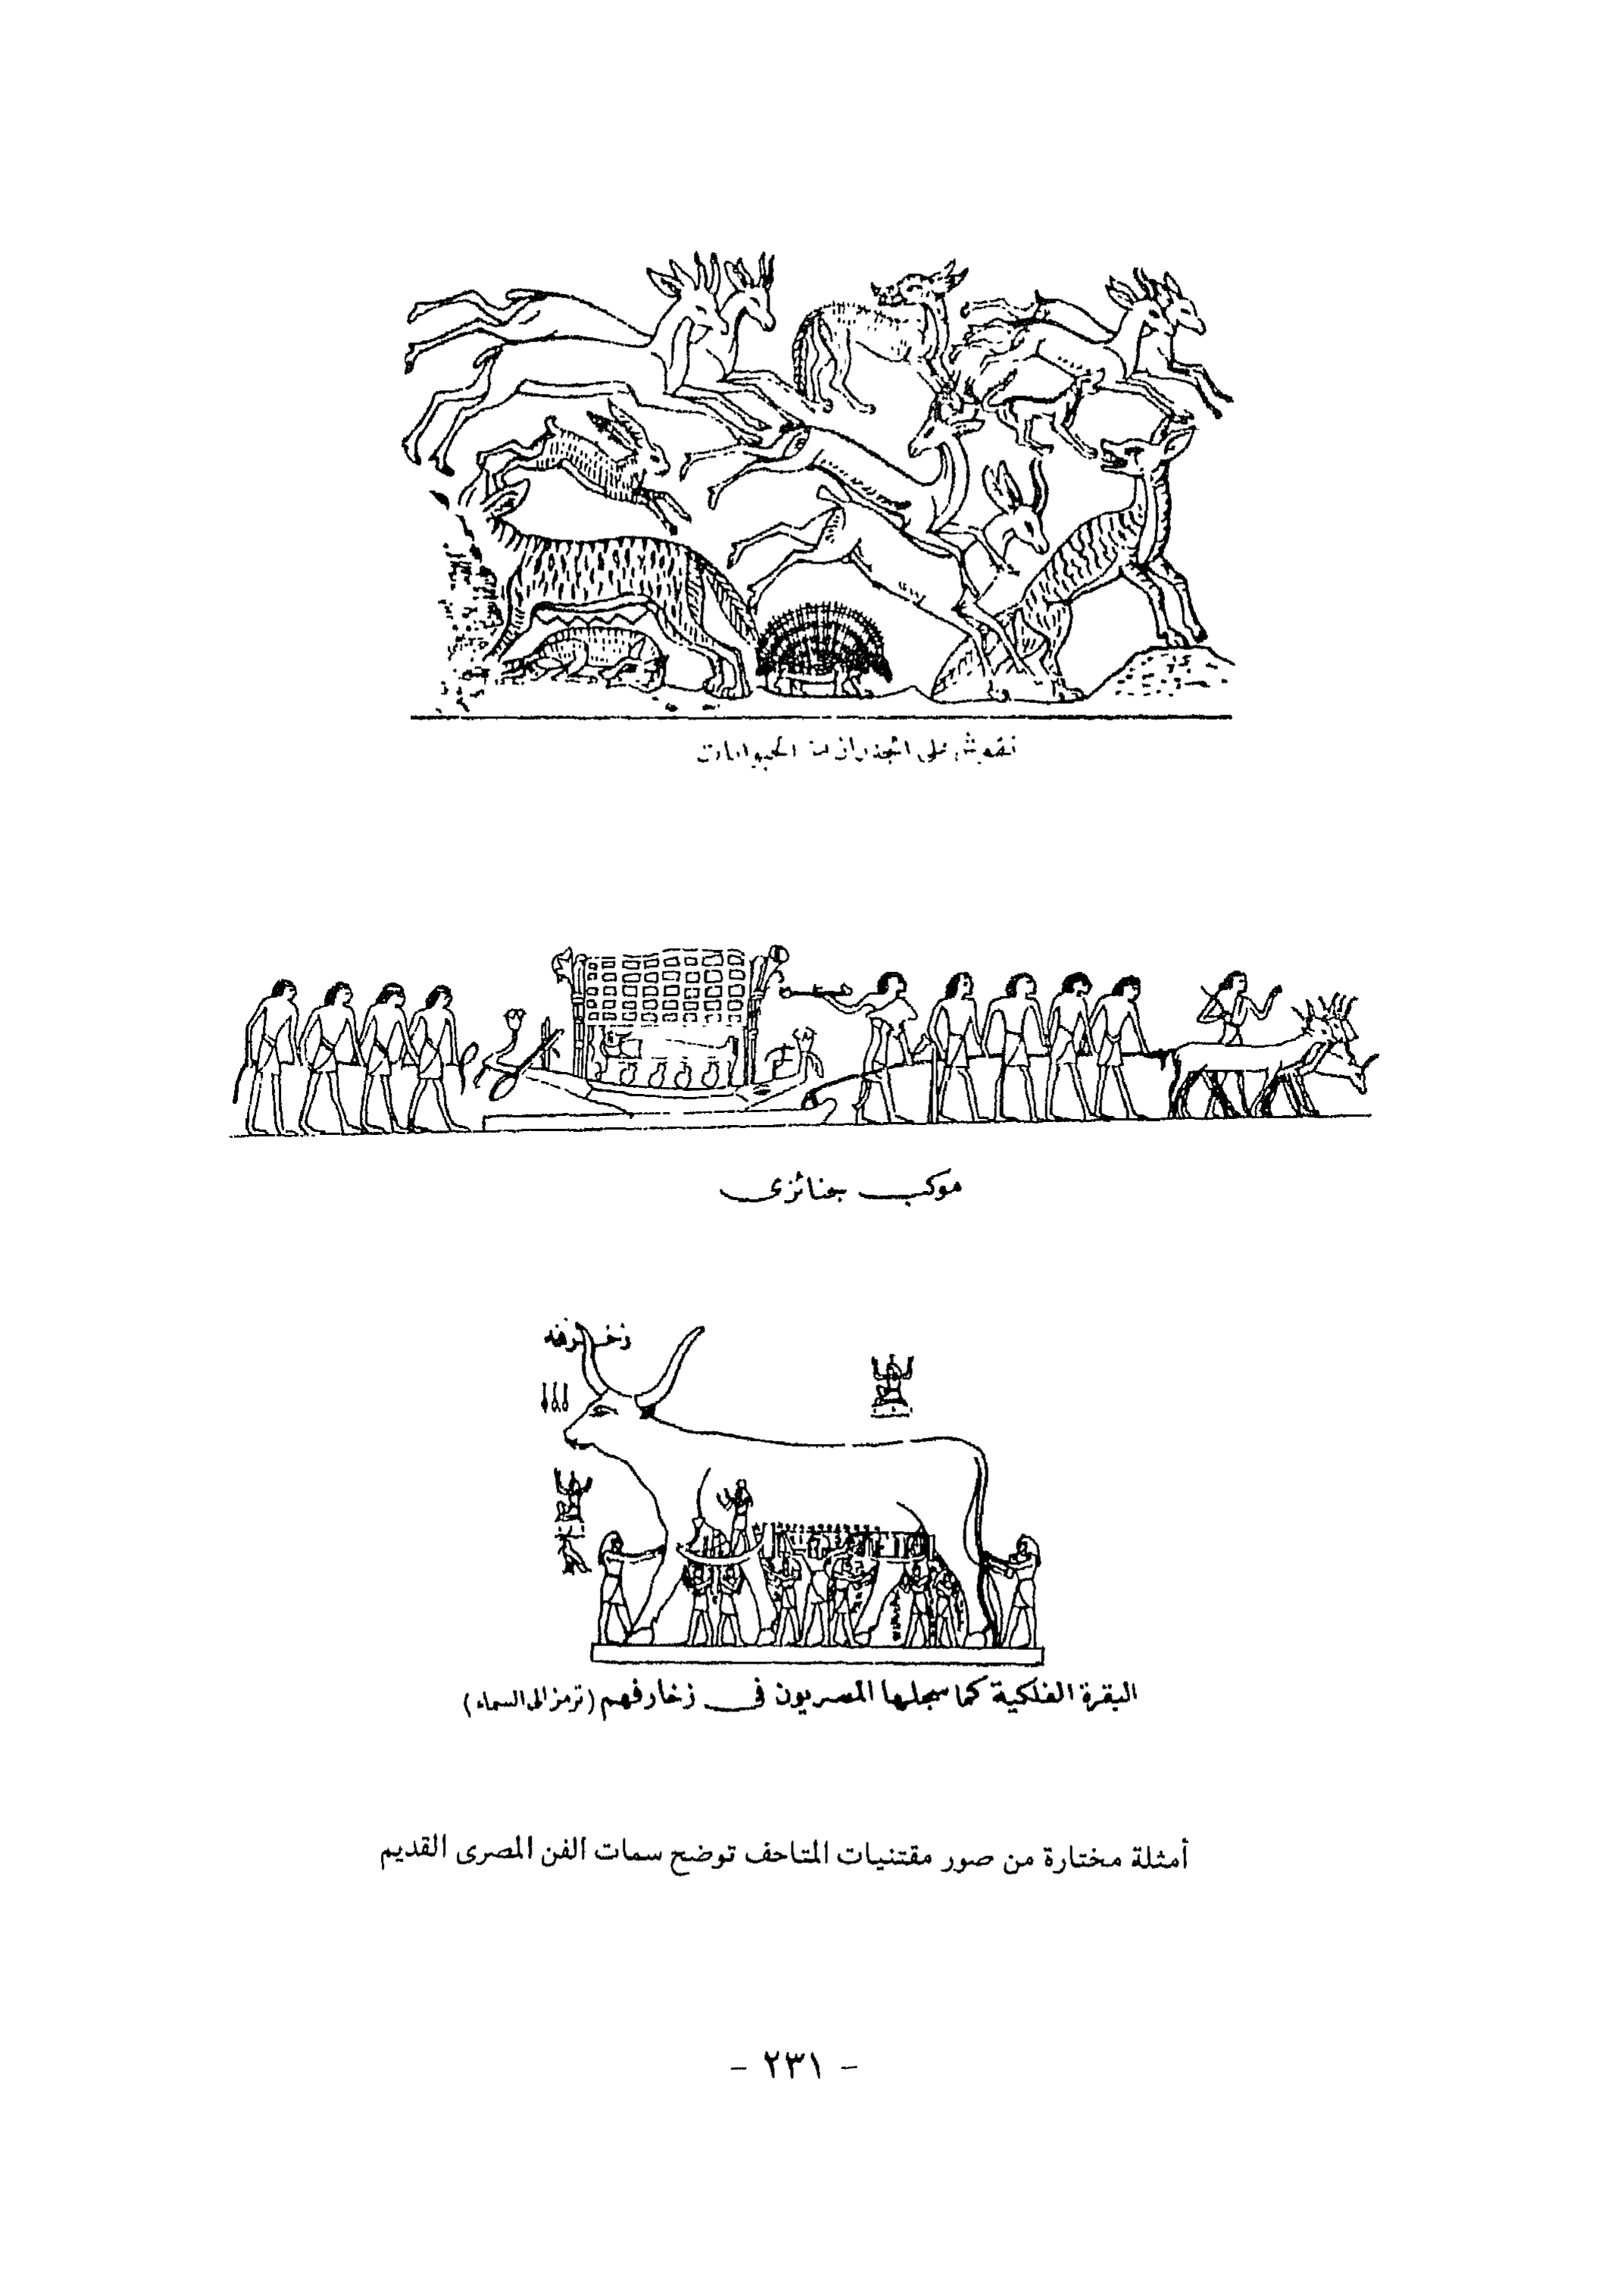 نقوش على الجدران من الحيوانات
موكب جنائزى
زخرفه
البقرة الفلكية كما سجلها المصريون فى زخارفهم (ترمز الى السماء)
أمثلة مختارة من صور مقتنيات المتاحف توضح سمات الفن المصرى القديم
- ٢٣١ -